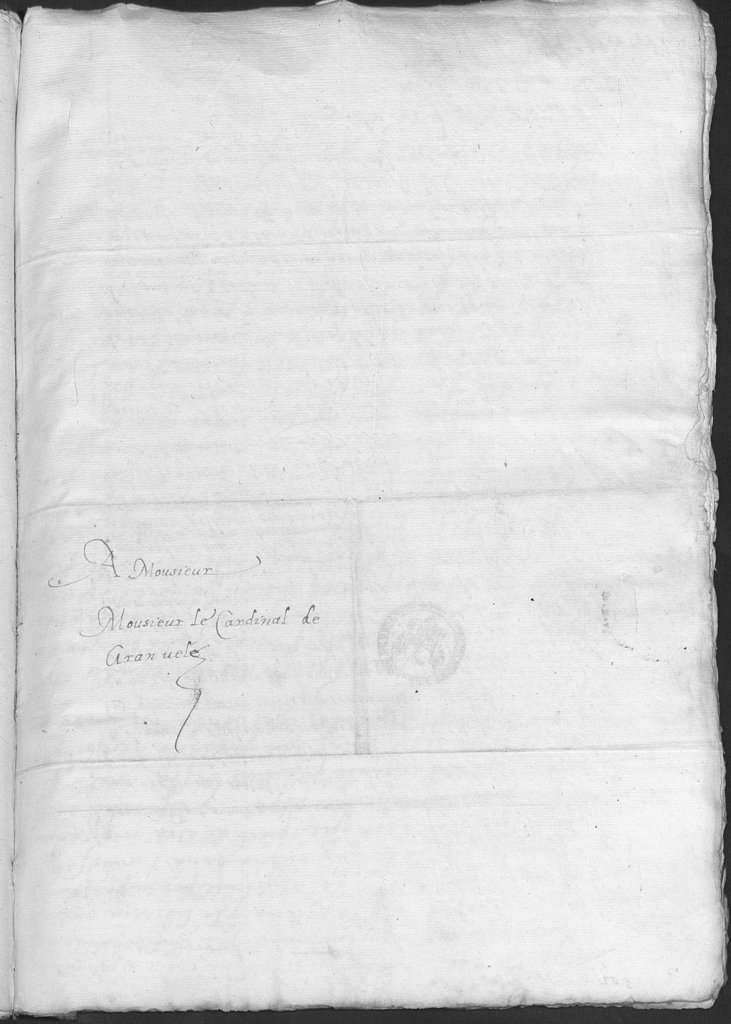 A Monsieur
Monsieur le Cardinal de
Granuele